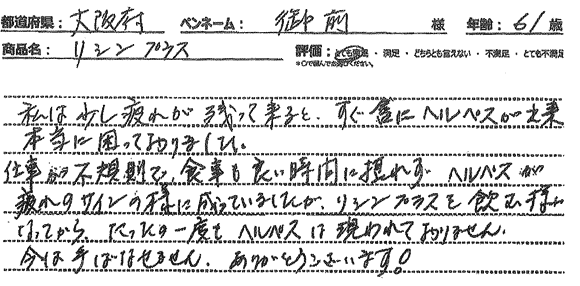 都道府県: 大阪府 ペンネーム: 御前 様 年齢: 61歳
商品名: リシンプラス 評価: とても満足 ・ 満足 ・ どちらとも言えない ・ 不満足 ・ とても不満足
*○で囲んでお答えください。
私は少し疲れが残って来ると、すぐ唇にヘルペスが出来
本当に困っておりました。
仕事が不規則で、食事も良い時間に摂れず ヘルペスが
疲れのサインの様に成っていましたが、リシンプラスを飲む様に
なってから、たったの一度もヘルペスは現われておりません。
今は手ばなせません。ありがとうございます!